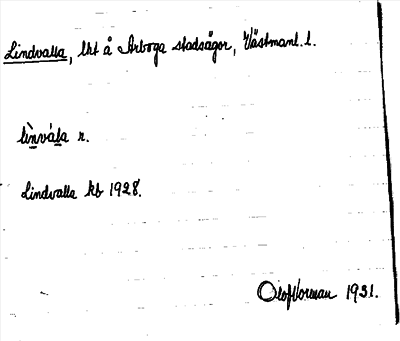 Lindvalla, lht å Arboga stadsägor, Västmanl. l.
lìnvála n.
Lindvalla kb 1928.
Olof Norman 1931.